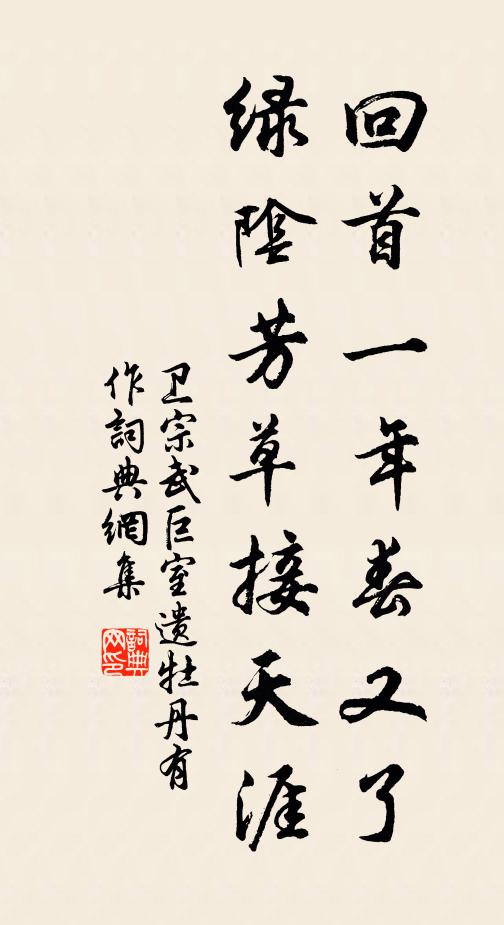 回首一年春又了
绿阴芳草接天涯
卫宗武巨室遗牡丹有
作詞典網集
詞典网印